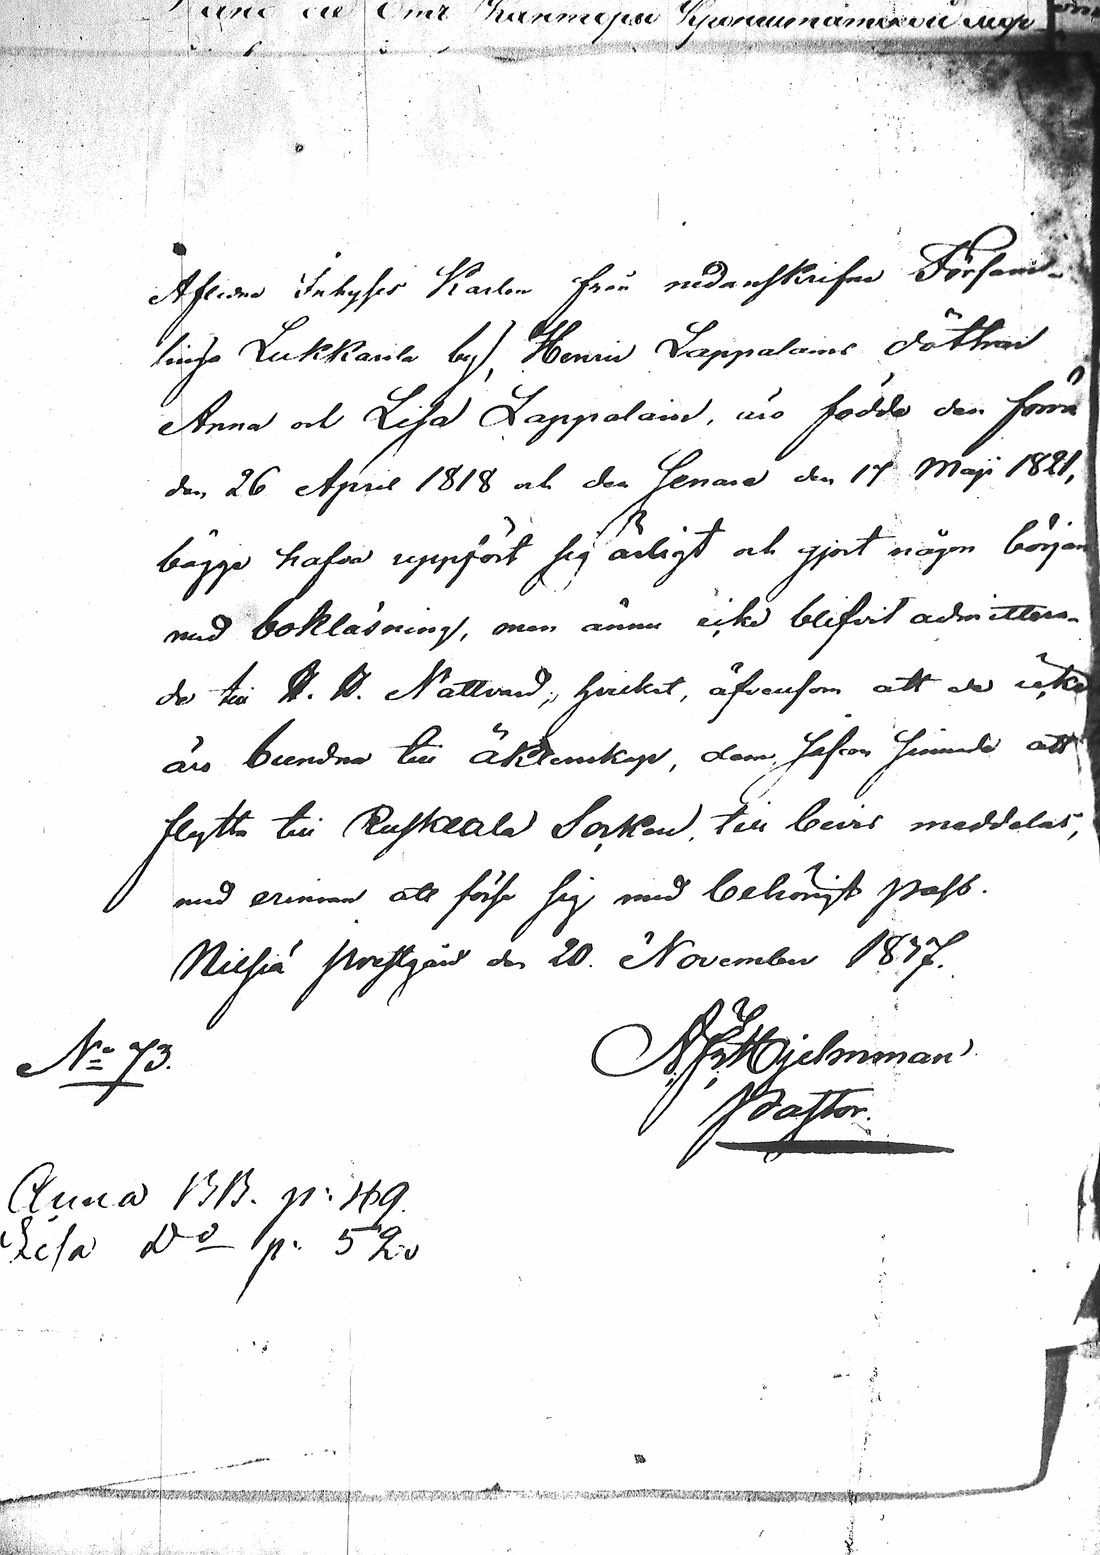 отъ Конторы Кронштатской мор
Afledne Inhyses Karlen från nedanskrifne Försam-
lings Lukkarila by, Henric Lappalains döttrar
Anna och Lisa Lappalain, äro födde den förra
den 26 April 1818 och den senare den 17 Maji 1821,
bägge hafva uppfört sig ärligt och gjort någon början
med bokläsning, men ännu icke blifvit admittera-
de till H. H. Nattvard, hvilket, äfvensom att de icke
äro bundne till äktenskap, dem, såsom sinnade att
flytta till Ruskeala Sorken, till bevis meddelas,
med erinran att förse sig med behörigt pass.
Nilsiä prestgård den 20. November 1837.
No 73.
Hjelmman
Pastor.
Anna BB. p. 49.
Lisa Do p. 520